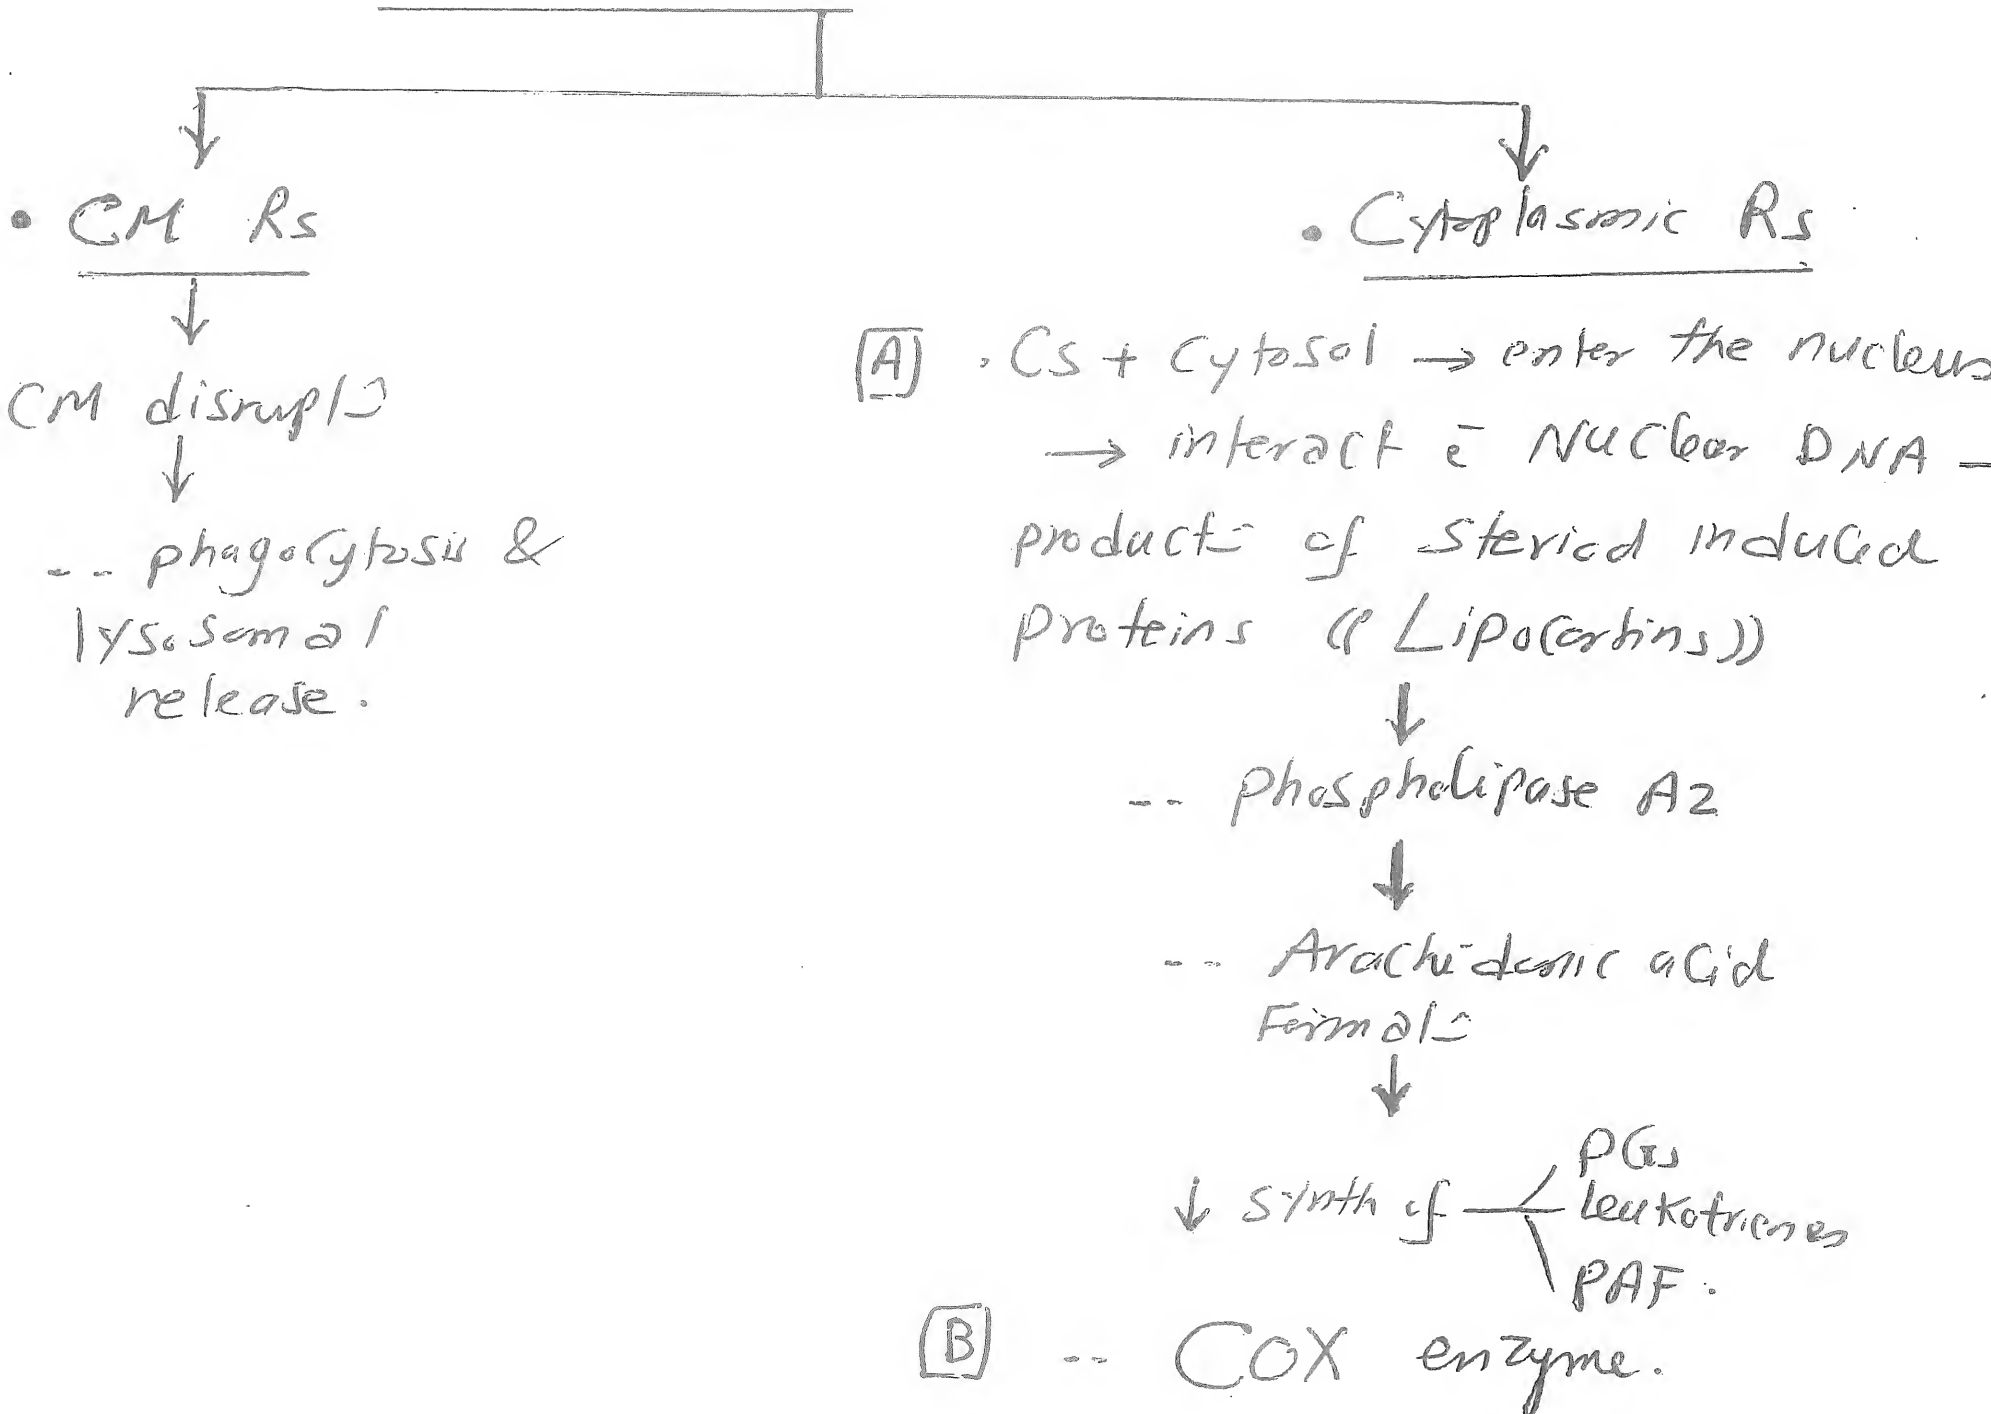 • CM Rs
CM disrupt=
-- phagocytosis &
lysosomal
release.
• Cytoplasmic Rs
[A] • Cs + Cytosol → enter the nucleus
→ interact c̄ Nuclear DNA –
product= of steriod induced
proteins ((Lipocortins))
-- phospholipase A2
-- Arachidonic acid
Format=
↓ synth of
PGs
leukotrienes
PAF.
[B] -- COX enzyme.